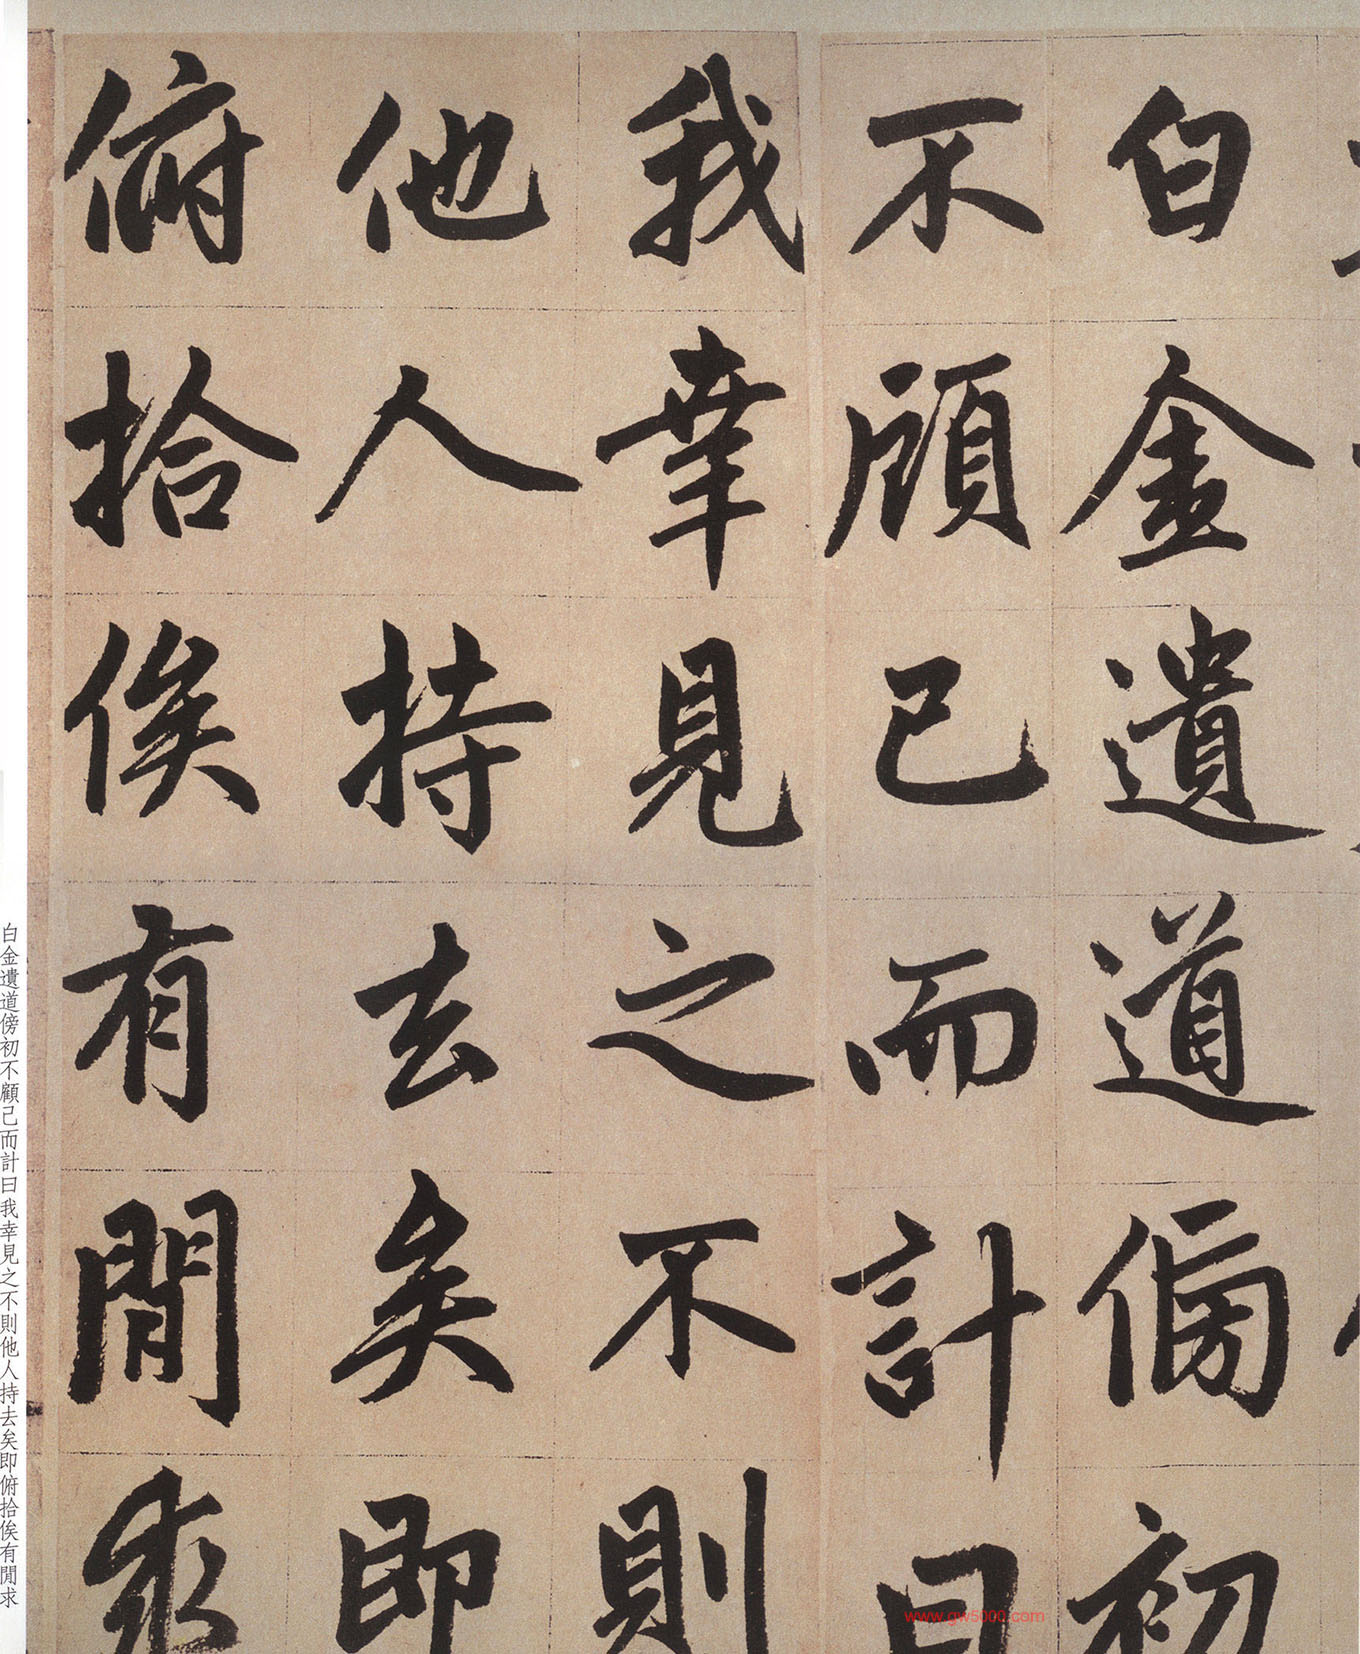 白金遺道傍初
不顧己而計曰
我幸見之不則
他人持去矣即
俯拾俟有閒求
白金遺道傍初不顧己而計曰我幸見之不則他人持去矣即俯拾俟有閒求
www.gw5000.com